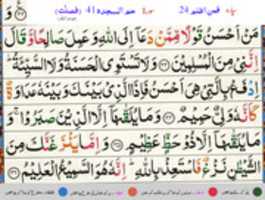 فمن اظلم 24 حم السجدة 41 (فصلت)
مَنۡ اَحۡسَنُ قَوۡلًا مِّمَّنۡ دَعَاۤ اِلَى اللّٰهِ وَعَمِلَ صَالِحًا وَّقَالَ
اِنَّنِىۡ مِنَ الۡمُسۡلِمِيۡنَ ۝ وَلَا تَسۡتَوِى الۡحَسَنَةُ وَلَا السَّيِّئَةُ ؕ
اِدۡفَعۡ بِالَّتِىۡ هِىَ اَحۡسَنُ فَاِذَا الَّذِىۡ بَيۡنَكَ وَبَيۡنَهٗ عَدَاوَةٌ
كَاَنَّهٗ وَلِىٌّ حَمِيۡمٌ ۝ وَمَا يُلَقّٰٮهَاۤ اِلَّا الَّذِيۡنَ صَبَرُوۡا ۚ وَ
مَا يُلَقّٰٮهَاۤ اِلَّا ذُوۡ حَظٍّ عَظِيۡمٍ ۝ وَاِمَّا يَنۡزَغَنَّكَ مِنَ
الشَّيۡطٰنِ نَزۡغٌ فَاسۡتَعِذۡ بِاللّٰهِ ؕ اِنَّهٗ هُوَ السَّمِيۡعُ الۡعَلِيۡمُ ۝